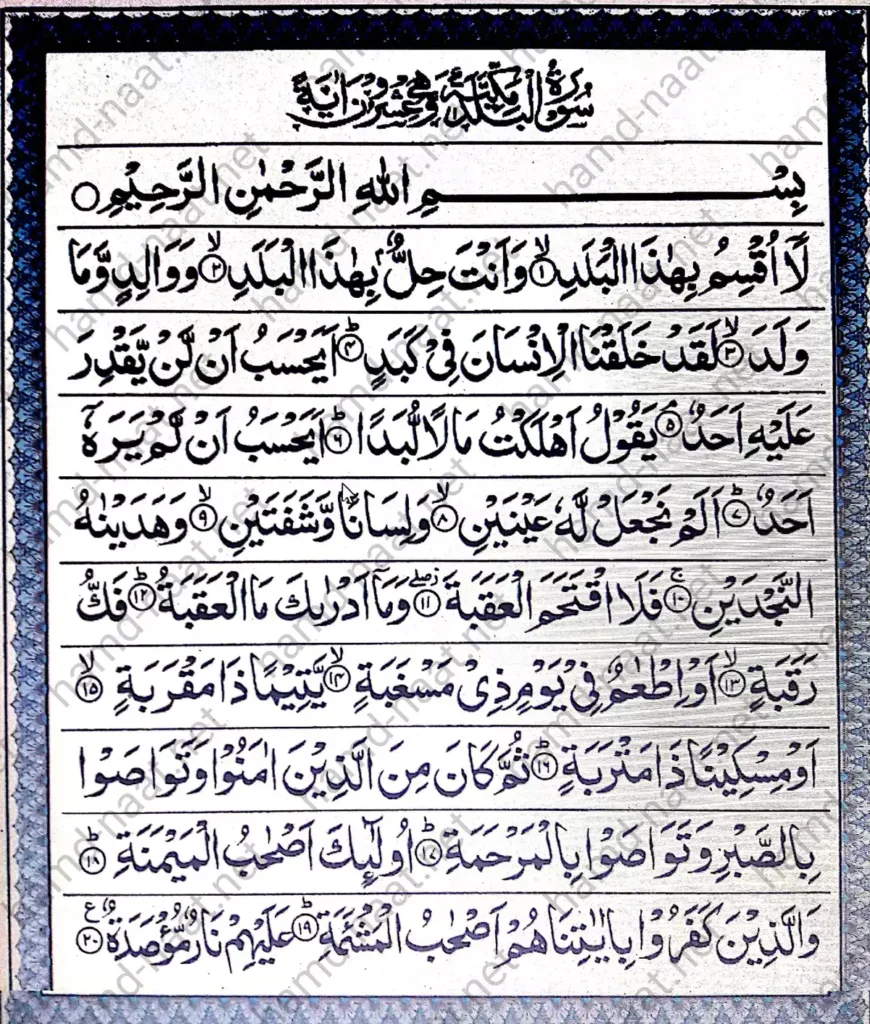 سُوْرَةُ الْبَلَدِ مَكِّيَّةٌ وَّهِيَ عِشْرُوْنَ اٰيَةً
بِسْمِ اللهِ الرَّحْمٰنِ الرَّحِيْمِ ○
لَاۤ اُقْسِمُ بِهٰذَا الْبَلَدِ ۙ﴿۱﴾ وَاَنْتَ حِلٌّۢ بِهٰذَا الْبَلَدِ ۙ﴿۲﴾ وَوَالِدٍ وَّمَا
وَلَدَ ۙ﴿۳﴾ لَقَدْ خَلَقْنَا الْاِنْسَانَ فِيْ كَبَدٍ ؕ﴿۴﴾ اَيَحْسَبُ اَنْ لَّنْ يَّقْدِرَ
عَلَيْهِ اَحَدٌ ۘ﴿۵﴾ يَقُوْلُ اَهْلَكْتُ مَالًا لُّبَدًا ؕ﴿۶﴾ اَيَحْسَبُ اَنْ لَّمْ يَرَهٗۤ
اَحَدٌ ؕ﴿۷﴾ اَلَمْ نَجْعَلْ لَّهٗ عَيْنَيْنِ ۙ﴿۸﴾ وَلِسَانًا وَّشَفَتَيْنِ ۙ﴿۹﴾ وَهَدَيْنٰهُ
النَّجْدَيْنِ ۚ﴿۱۰﴾ فَلَا اقْتَحَمَ الْعَقَبَةَ ۖ﴿۱۱﴾ وَمَاۤ اَدْرٰىكَ مَا الْعَقَبَةُ ؕ﴿۱۲﴾ فَكُّ
رَقَبَةٍ ۙ﴿۱۳﴾ اَوْ اِطْعٰمٌ فِيْ يَوْمٍ ذِيْ مَسْغَبَةٍ ۙ﴿۱۴﴾ يَّتِيْمًا ذَا مَقْرَبَةٍ ۙ﴿۱۵﴾
اَوْ مِسْكِيْنًا ذَا مَتْرَبَةٍ ؕ﴿۱۶﴾ ثُمَّ كَانَ مِنَ الَّذِيْنَ اٰمَنُوْا وَتَوَاصَوْا
بِالصَّبْرِ وَتَوَاصَوْا بِالْمَرْحَمَةِ ؕ﴿۱۷﴾ اُولٰٓئِكَ اَصْحٰبُ الْمَيْمَنَةِ ؕ﴿۱۸﴾
وَالَّذِيْنَ كَفَرُوْا بِاٰيٰتِنَا هُمْ اَصْحٰبُ الْمَشْئَمَةِ ؕ﴿۱۹﴾ عَلَيْهِمْ نَارٌ مُّؤْصَدَةٌ ۠﴿۲۰﴾ ع
hamd-naat.net